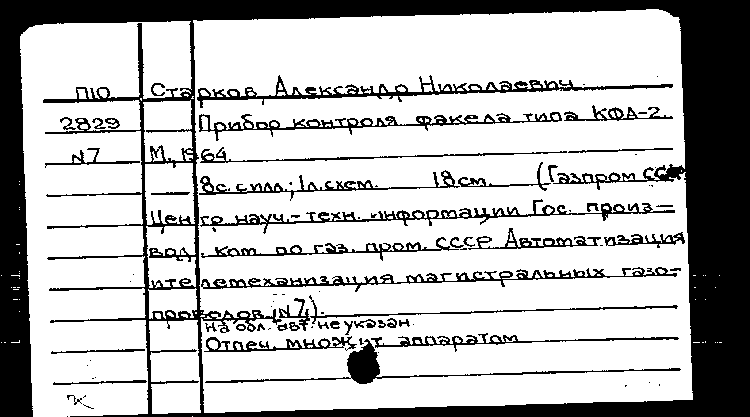 П10 Старков, Александр Николаевич
2829 Прибор контроля факела типа КФА-2.
N7 М., 1964.
8с. с илл.; 1л. схем. 18см. (Газпром СССР
Центр науч.-техн. информации Гос. произ=
вод. ком. по газ. пром. СССР Автоматизация
и телемеханизация магистральных газо=
проводов, N7).
на обл. авт. не указан
Отпеч. множит. аппаратом